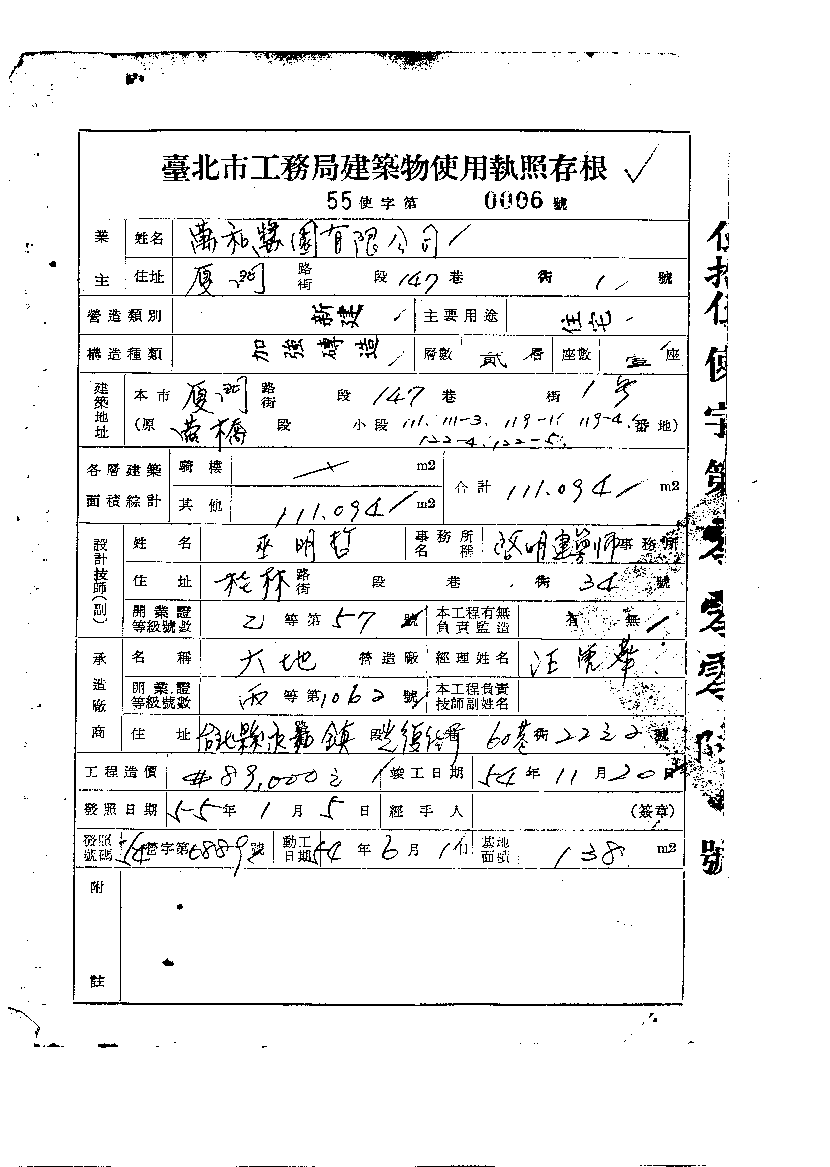 臺北市工務局建築物使用執照存根 ✓
55使字第 0006號
業主 姓名 萬和農園有限公司
住址 厦門 路街 段 147 巷 衖 1 號
營造類別 新建 主要用途 住宅
構造種類 加強磚造 層數 貳層 座數 壹座
建築地址 本市 厦門 路街 段 147 巷 衖 1号
(原 螢橋 段 小段 111. 111-3. 119-1. 119-4. 番地)
122-4. 122-5.
各層建築面積綜計 騎樓 m2 合計 111.094 m2
其他 111.094 m2
設計技師(副) 姓名 巫明哲 事務所名稱 啓明建築師事務所
住址 桂林 路街 段 巷 衖 34 號
開業證等級號數 乙等第57號 本工程有無負責監造 有 無
承造廠商 名稱 大地 營造廠 經理姓名 汪 華
開業證等級號數 丙等第1062號 本工程負責技師副姓名
住址 台北縣永和鎮 段 巷 60巷 衖 22之2 號
工程造價 #89,000元 竣工日期 54年11月20日
發照日期 55年1月5日 經手人 (簽章)
發照號碼 54營字第6889號 動工日期 54年6月1日 基地面積 138 m2
附註
使字第零零零陸號